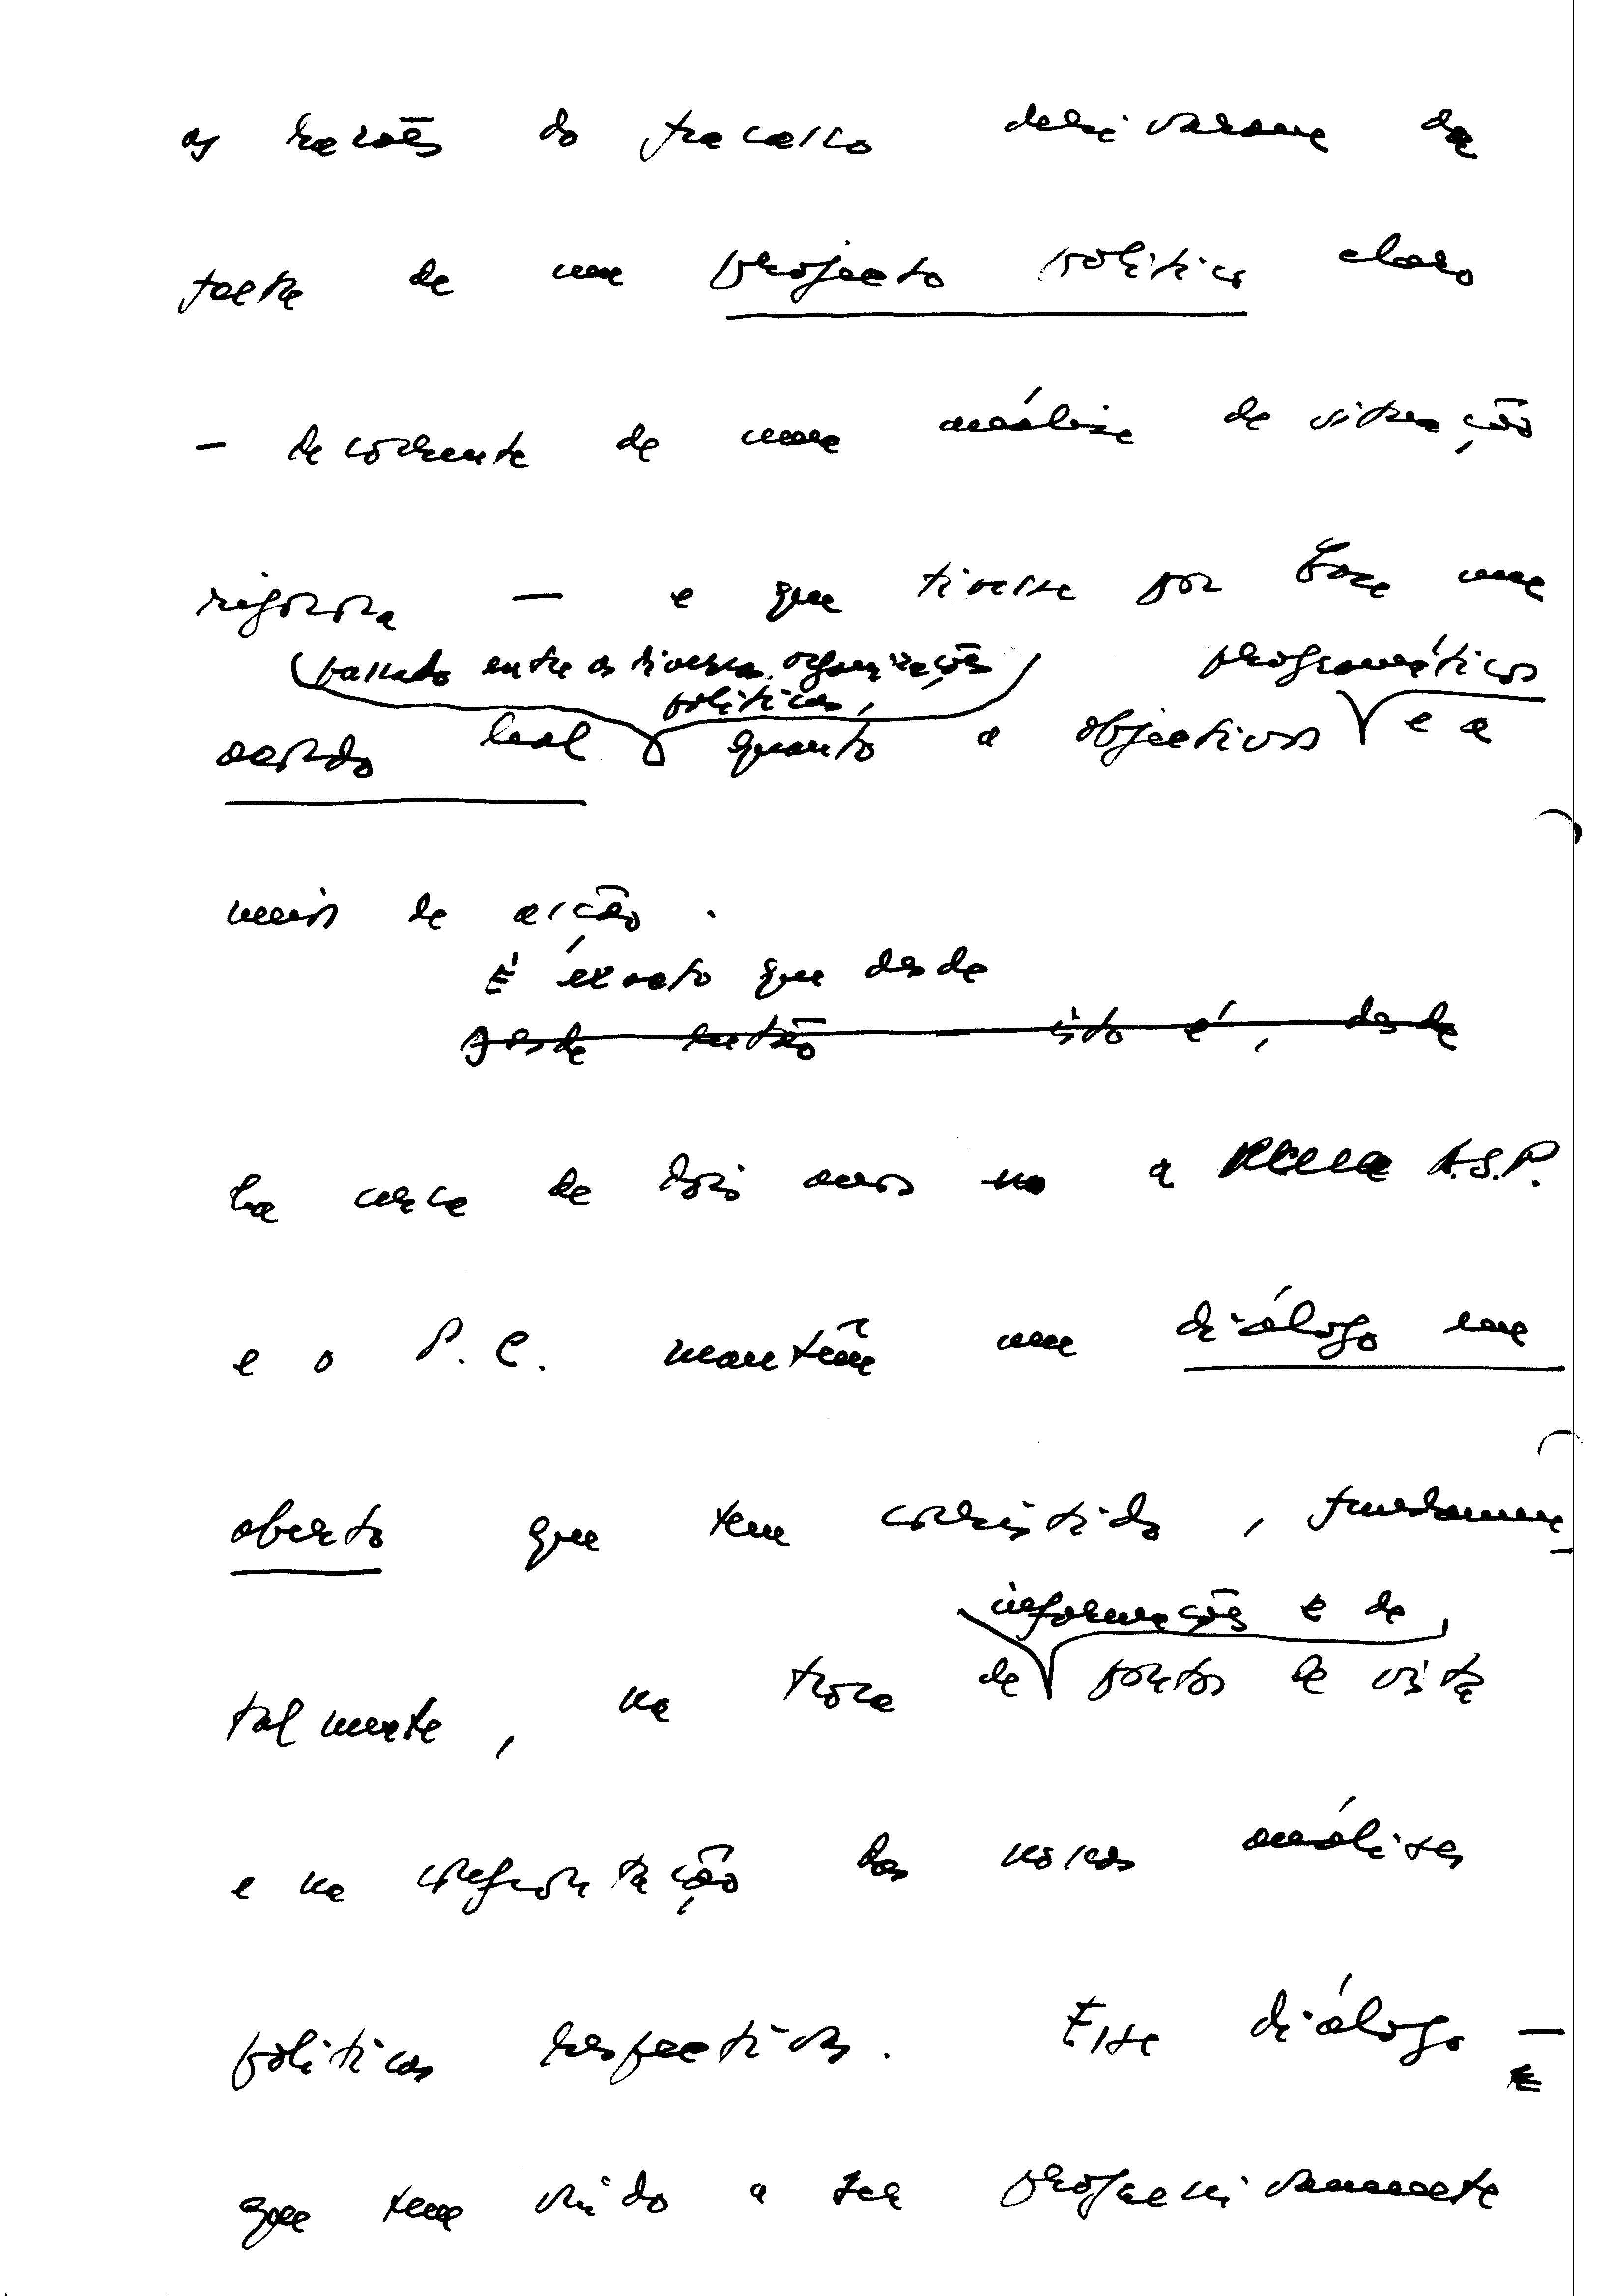 as razões do fracasso derivaram da
falta de um projecto politico claro
- decorrente de uma análise de situação
rigorosa — e que tivesse por base um
passado entre as diversas organizações programáticos
políticas,
acordo leal quanto a objectivos e a
meios de acção.
É exacto que desde
Desde então — isto é, desde
ha cerca de dois anos a A.S.P.
e o P.C. mantêm um diálogo em
aberto que tem consistido, fundamen-
informações e de
talmente, na troca de pontos de vista
e na confrontação das nossas análises
politicas respectivas. Esse diálogo —
que tem vindo a ser progressivamente